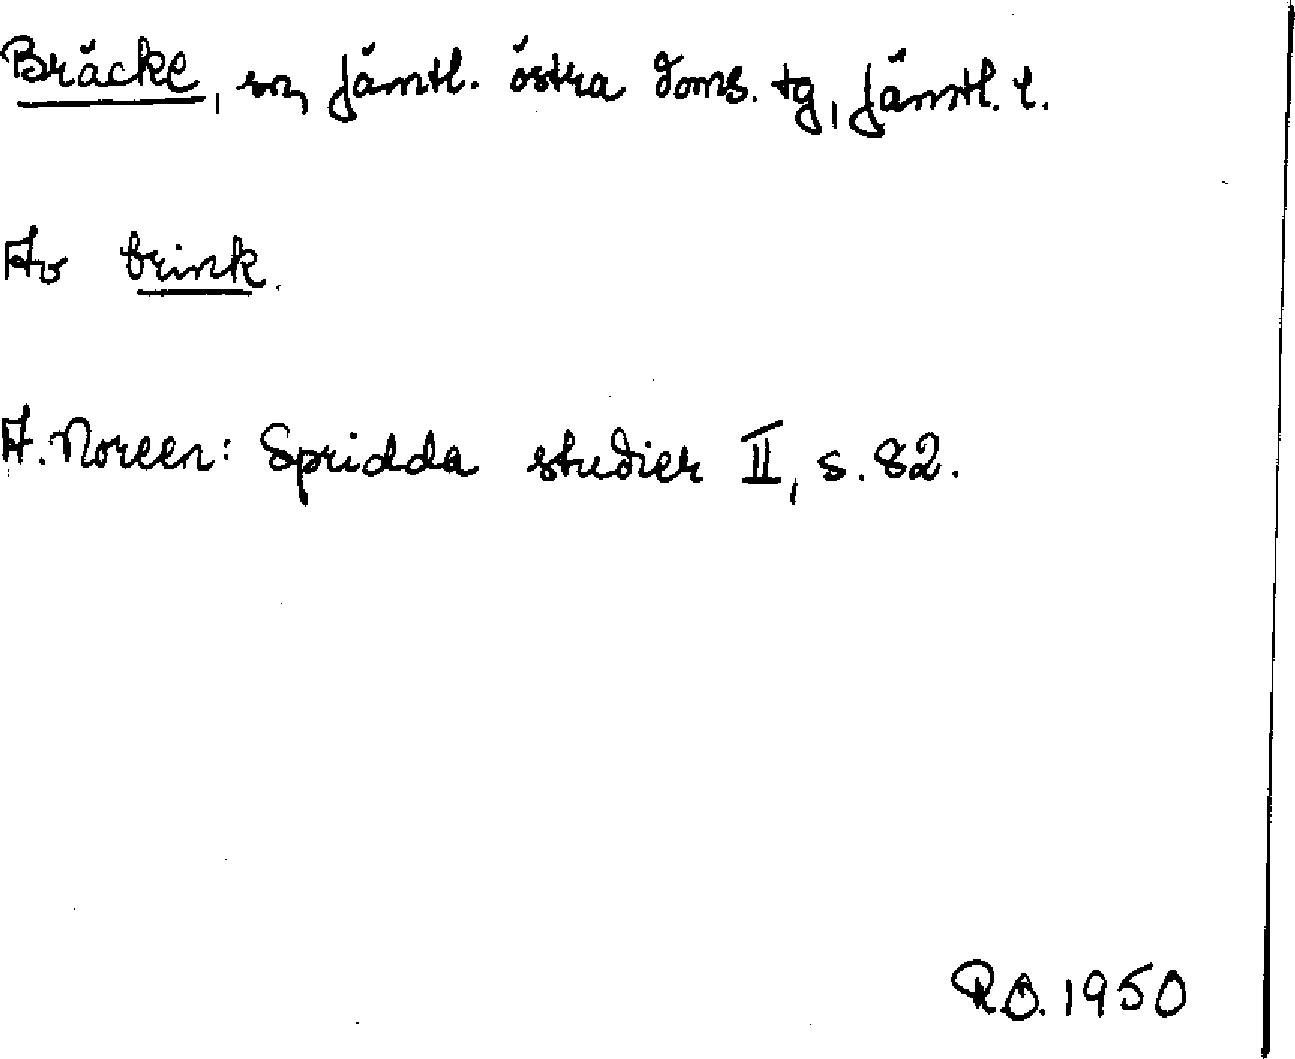 Bräcke, sn, Jämtl. östra doms. tg, Jämtl. l.
Av brink.
A. Noreen: Spridda studier II, s. 82.
R.O. 1950